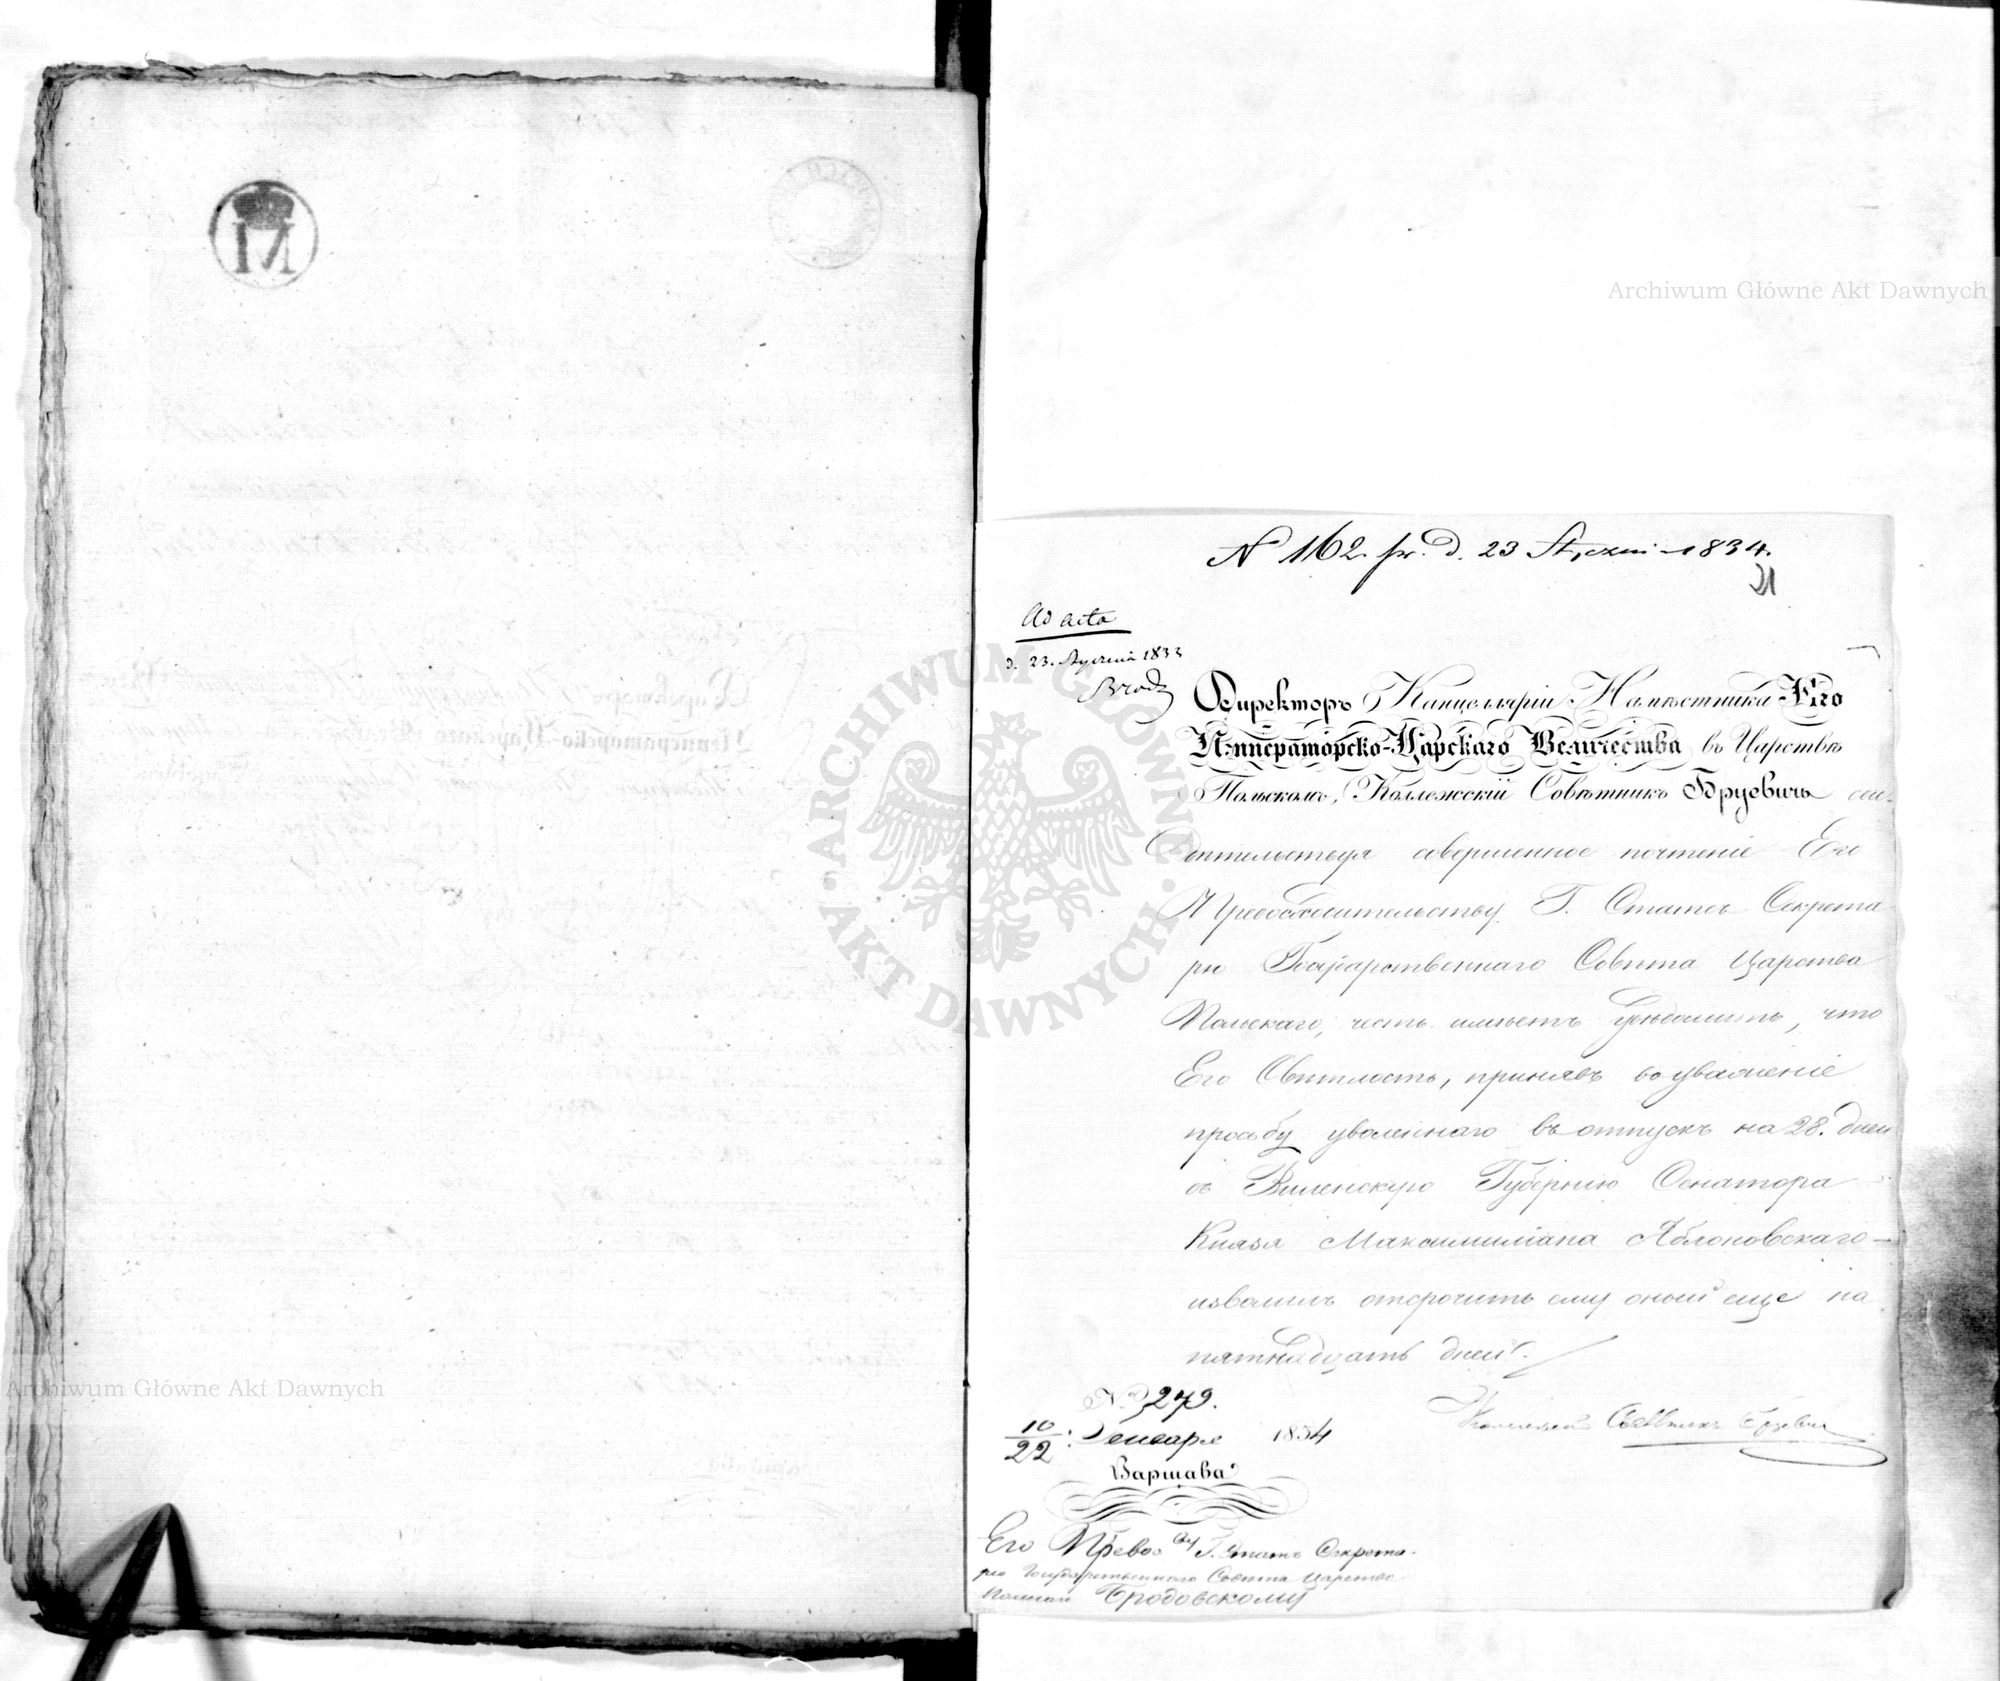 N 162. pr. d. 23 Styczni 1834.
21
Ad acta
d. 23. Stycznia 1833
Brodz
Директоръ Канцелляріи Намѣстника Его
Императорско-Царскаго Величества въ Царствѣ
Польскомъ, Коллежскій Совѣтникъ Бруевичъ сви-
дѣтельствуя совершенное почтеніе Его
Превосходительству Г. Статсъ Секрета
рю Государственнаго Совѣта Царства
Польскаго, честь имѣетъ увѣдомить, что
Его Свѣтлость, принявъ во уваженіе
просьбу уволеннаго въ отпускъ на 28. дней
въ Виленскую Губернію Сенатора
Князя Максимиліана Яблоновскаго
изволилъ отсрочить ему оный еще на
пятнадцать дней.
N. 279.
10/22 Генваря 1834
Коллежскій Совѣтникъ Бруевичъ
Варшава
Его Превос ву Г. Статсъ Секрета-
рю Государственнаго Совѣта Царства
Польскаго Бродовскому
Archiwum Główne Akt Dawnych
Archiwum Główne Akt Dawnych
ARCHIWUM GŁÓWNE · AKT DAWNYCH ·